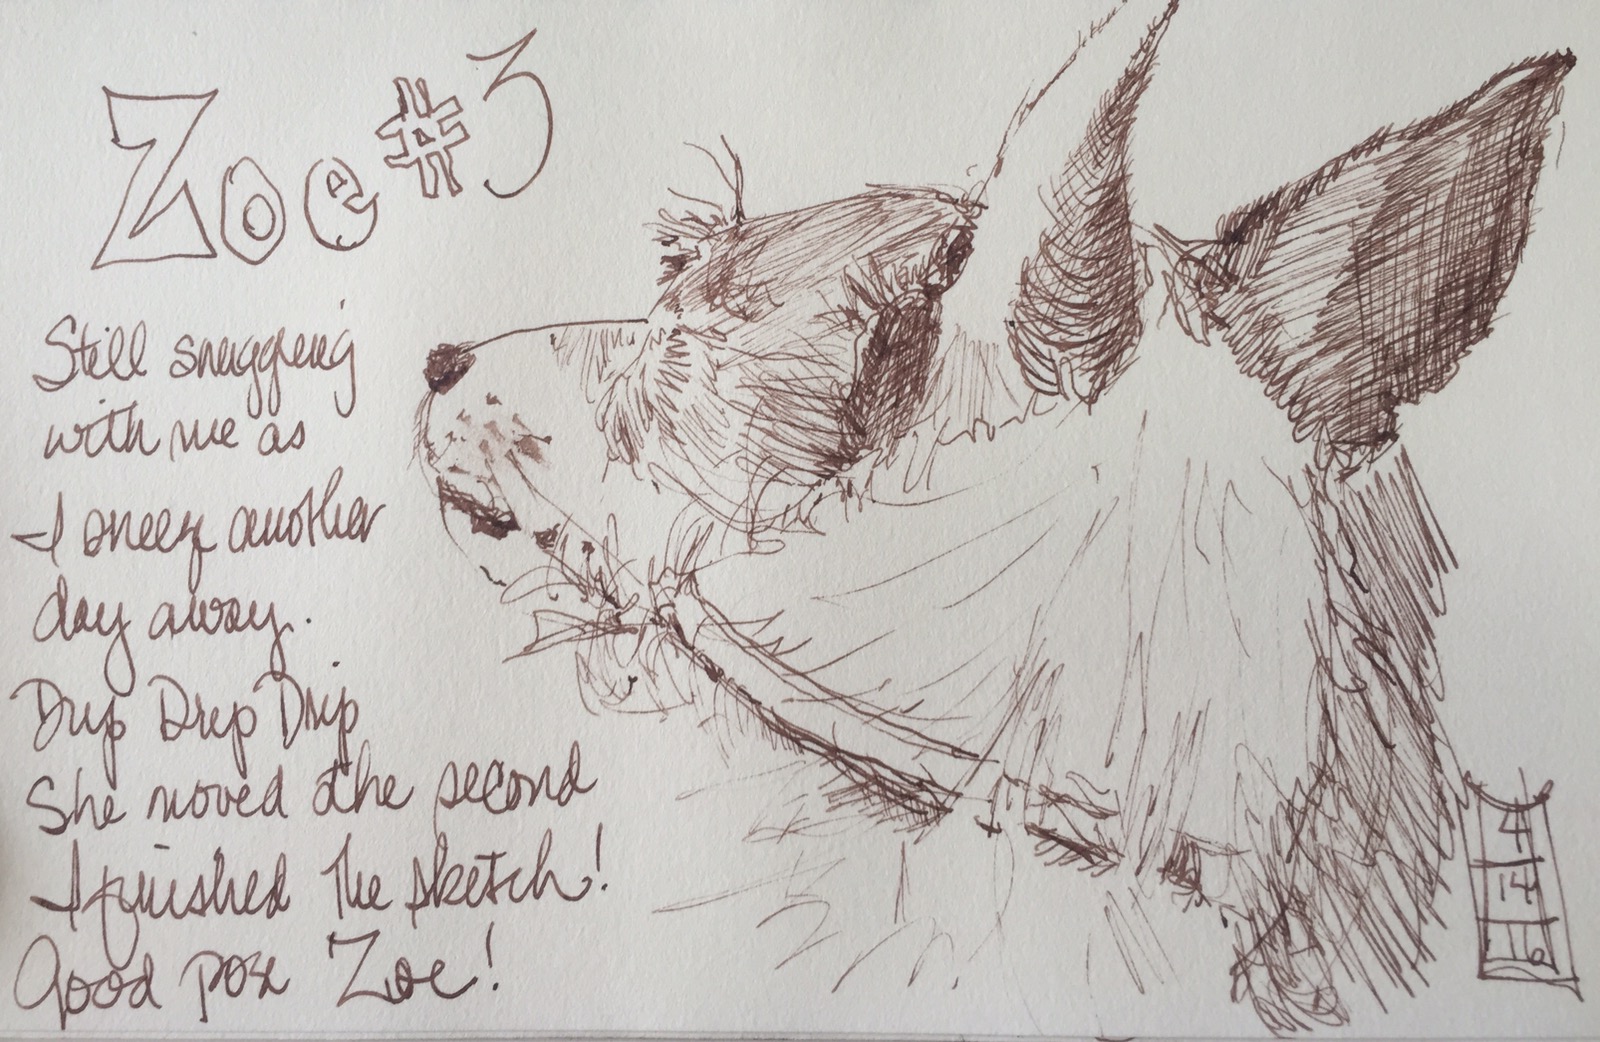 Zoe #3
Still snuggling
with me as
I sneeze another
day away.
Drip Drip Drip
She moved the second
I finished the sketch!
Good pose Zoe!
4
14
16